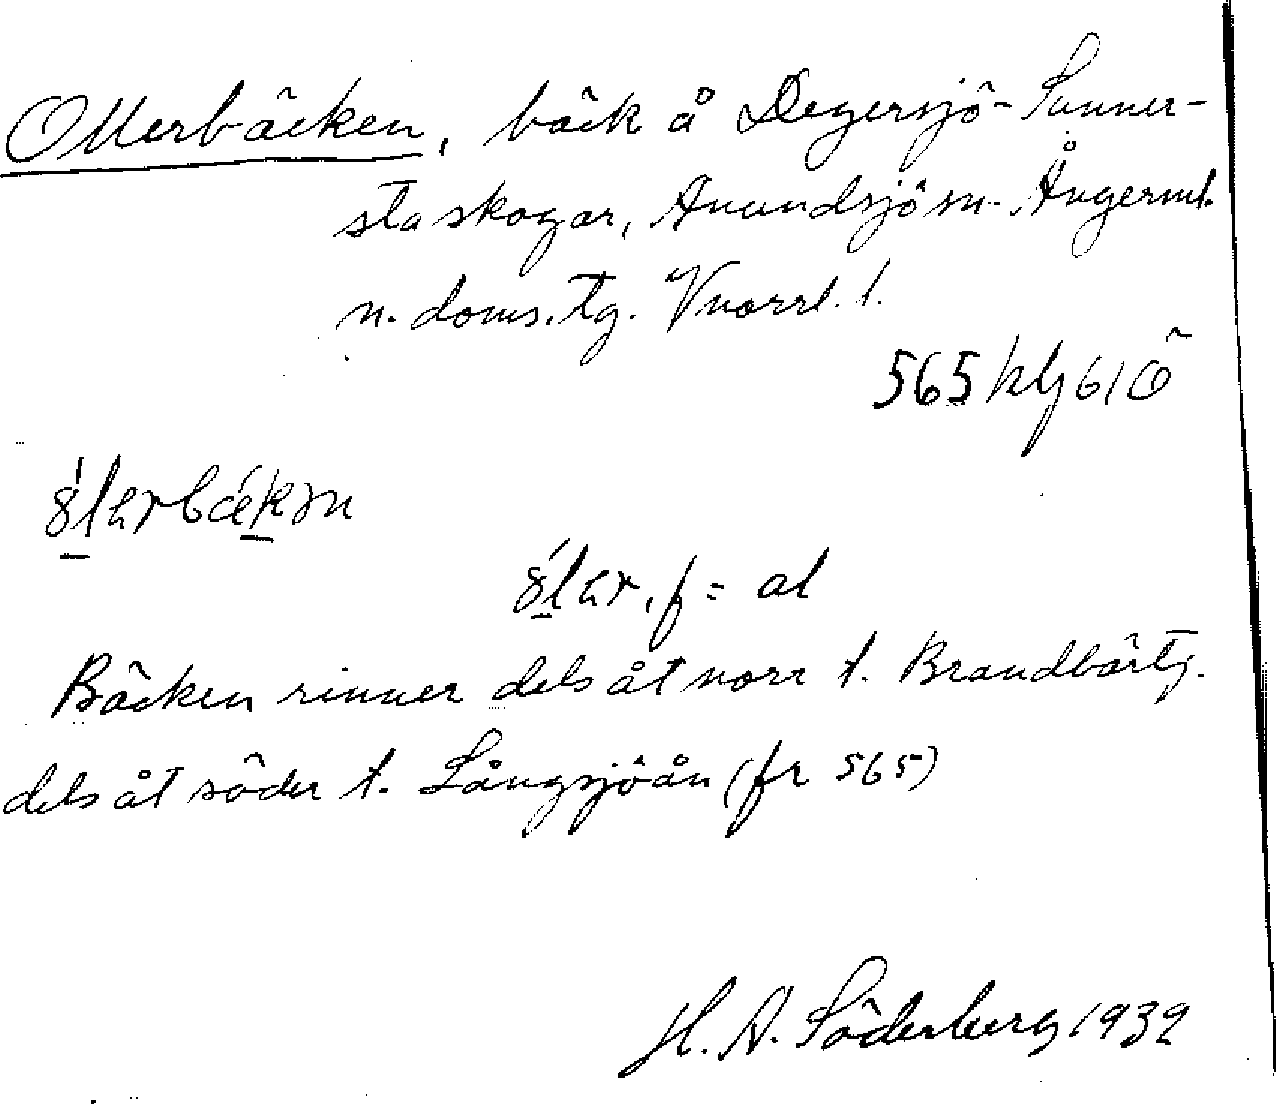 Ollerbäcken, bäck å Degersjö- Sunner-
sta skogar, Anundsjö sn. Ångerml.
n. doms. tg. Vnorrl. l.
565
Bäcken rinner dels åt norr t. Brandbärtj.
dels åt söder t. Långsjöån (fr 565)
f = al
H. A. Söderberg 1932